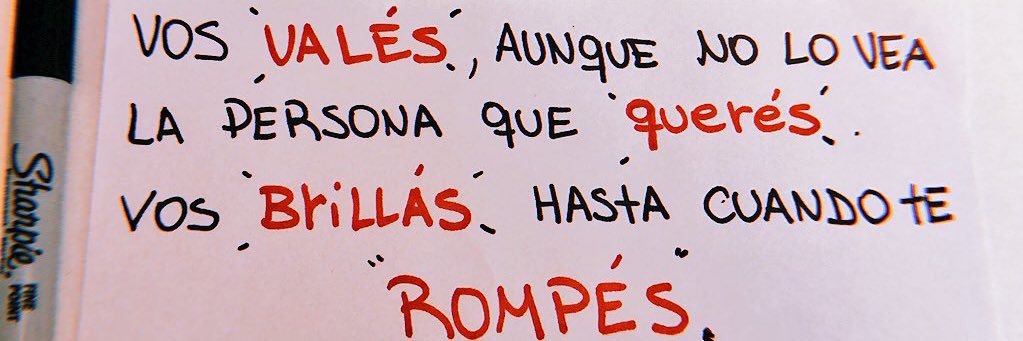 VOS VALÉS, AUNQUE NO LO VEA
LA PERSONA QUE querés.
VOS BrILLÁS HASTA CUANDO TE
"ROMPÉS".
Sharpie.
FINE POINT